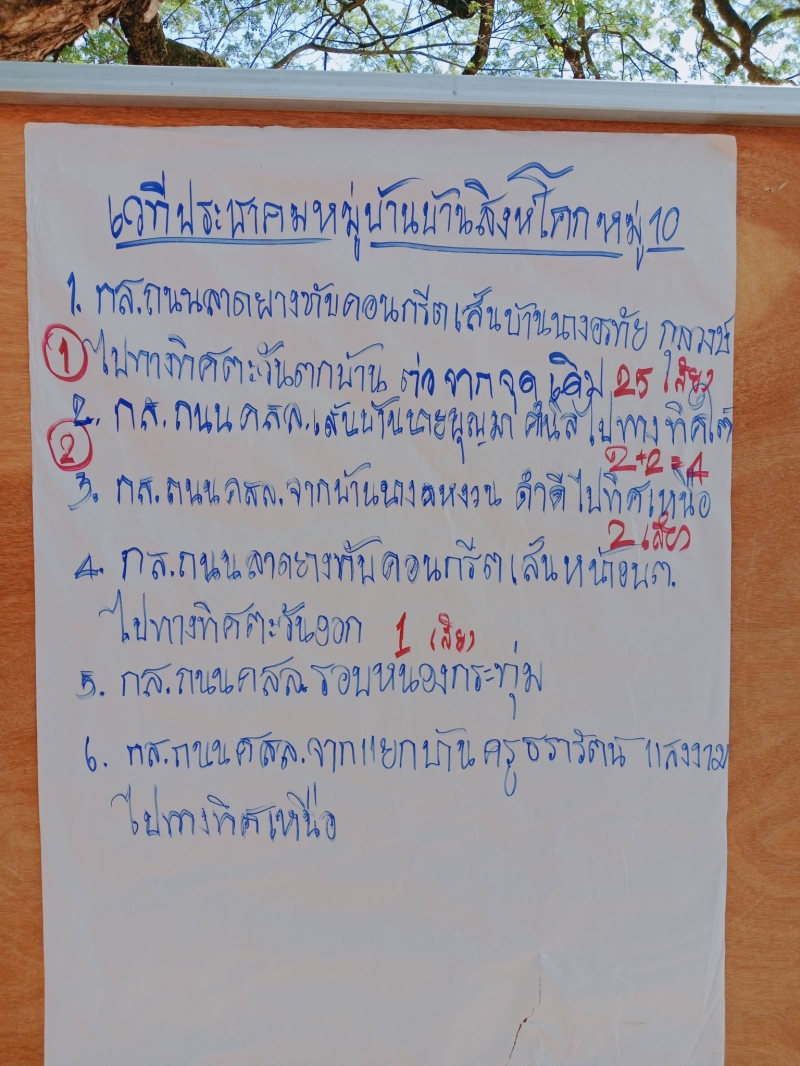 เวทีประชาคมหมู่บ้านบ้านสิงห์โคกหมู่ 10
1. กส.ถนนลาดยางทับคอนกรีตเส้นบ้านนางอรทัย กุลวงษ์
① ไปทางทิศตะวันตกบ้าน ต่อจากจุดเดิม 25 เสียง
2. กส.ถนนคสล.เส้นบ้านนายบุญมา ไปทางทิศใต้
② 2+2=4
3. กส.ถนนคสล.จากบ้านนาง ดำดีไปทิศเหนือ
2 เสียง
4. กส.ถนนลาดยางทับคอนกรีตเส้นหน้าอบต.
ไปทางทิศตะวันออก 1 เสียง
5. กส.ถนนคสล.รอบหนองกระทุ่ม
6. กส.ถนนคสล.จากแยกบ้านครูธรารัตน์ แสงงาม
ไปทางทิศเหนือ